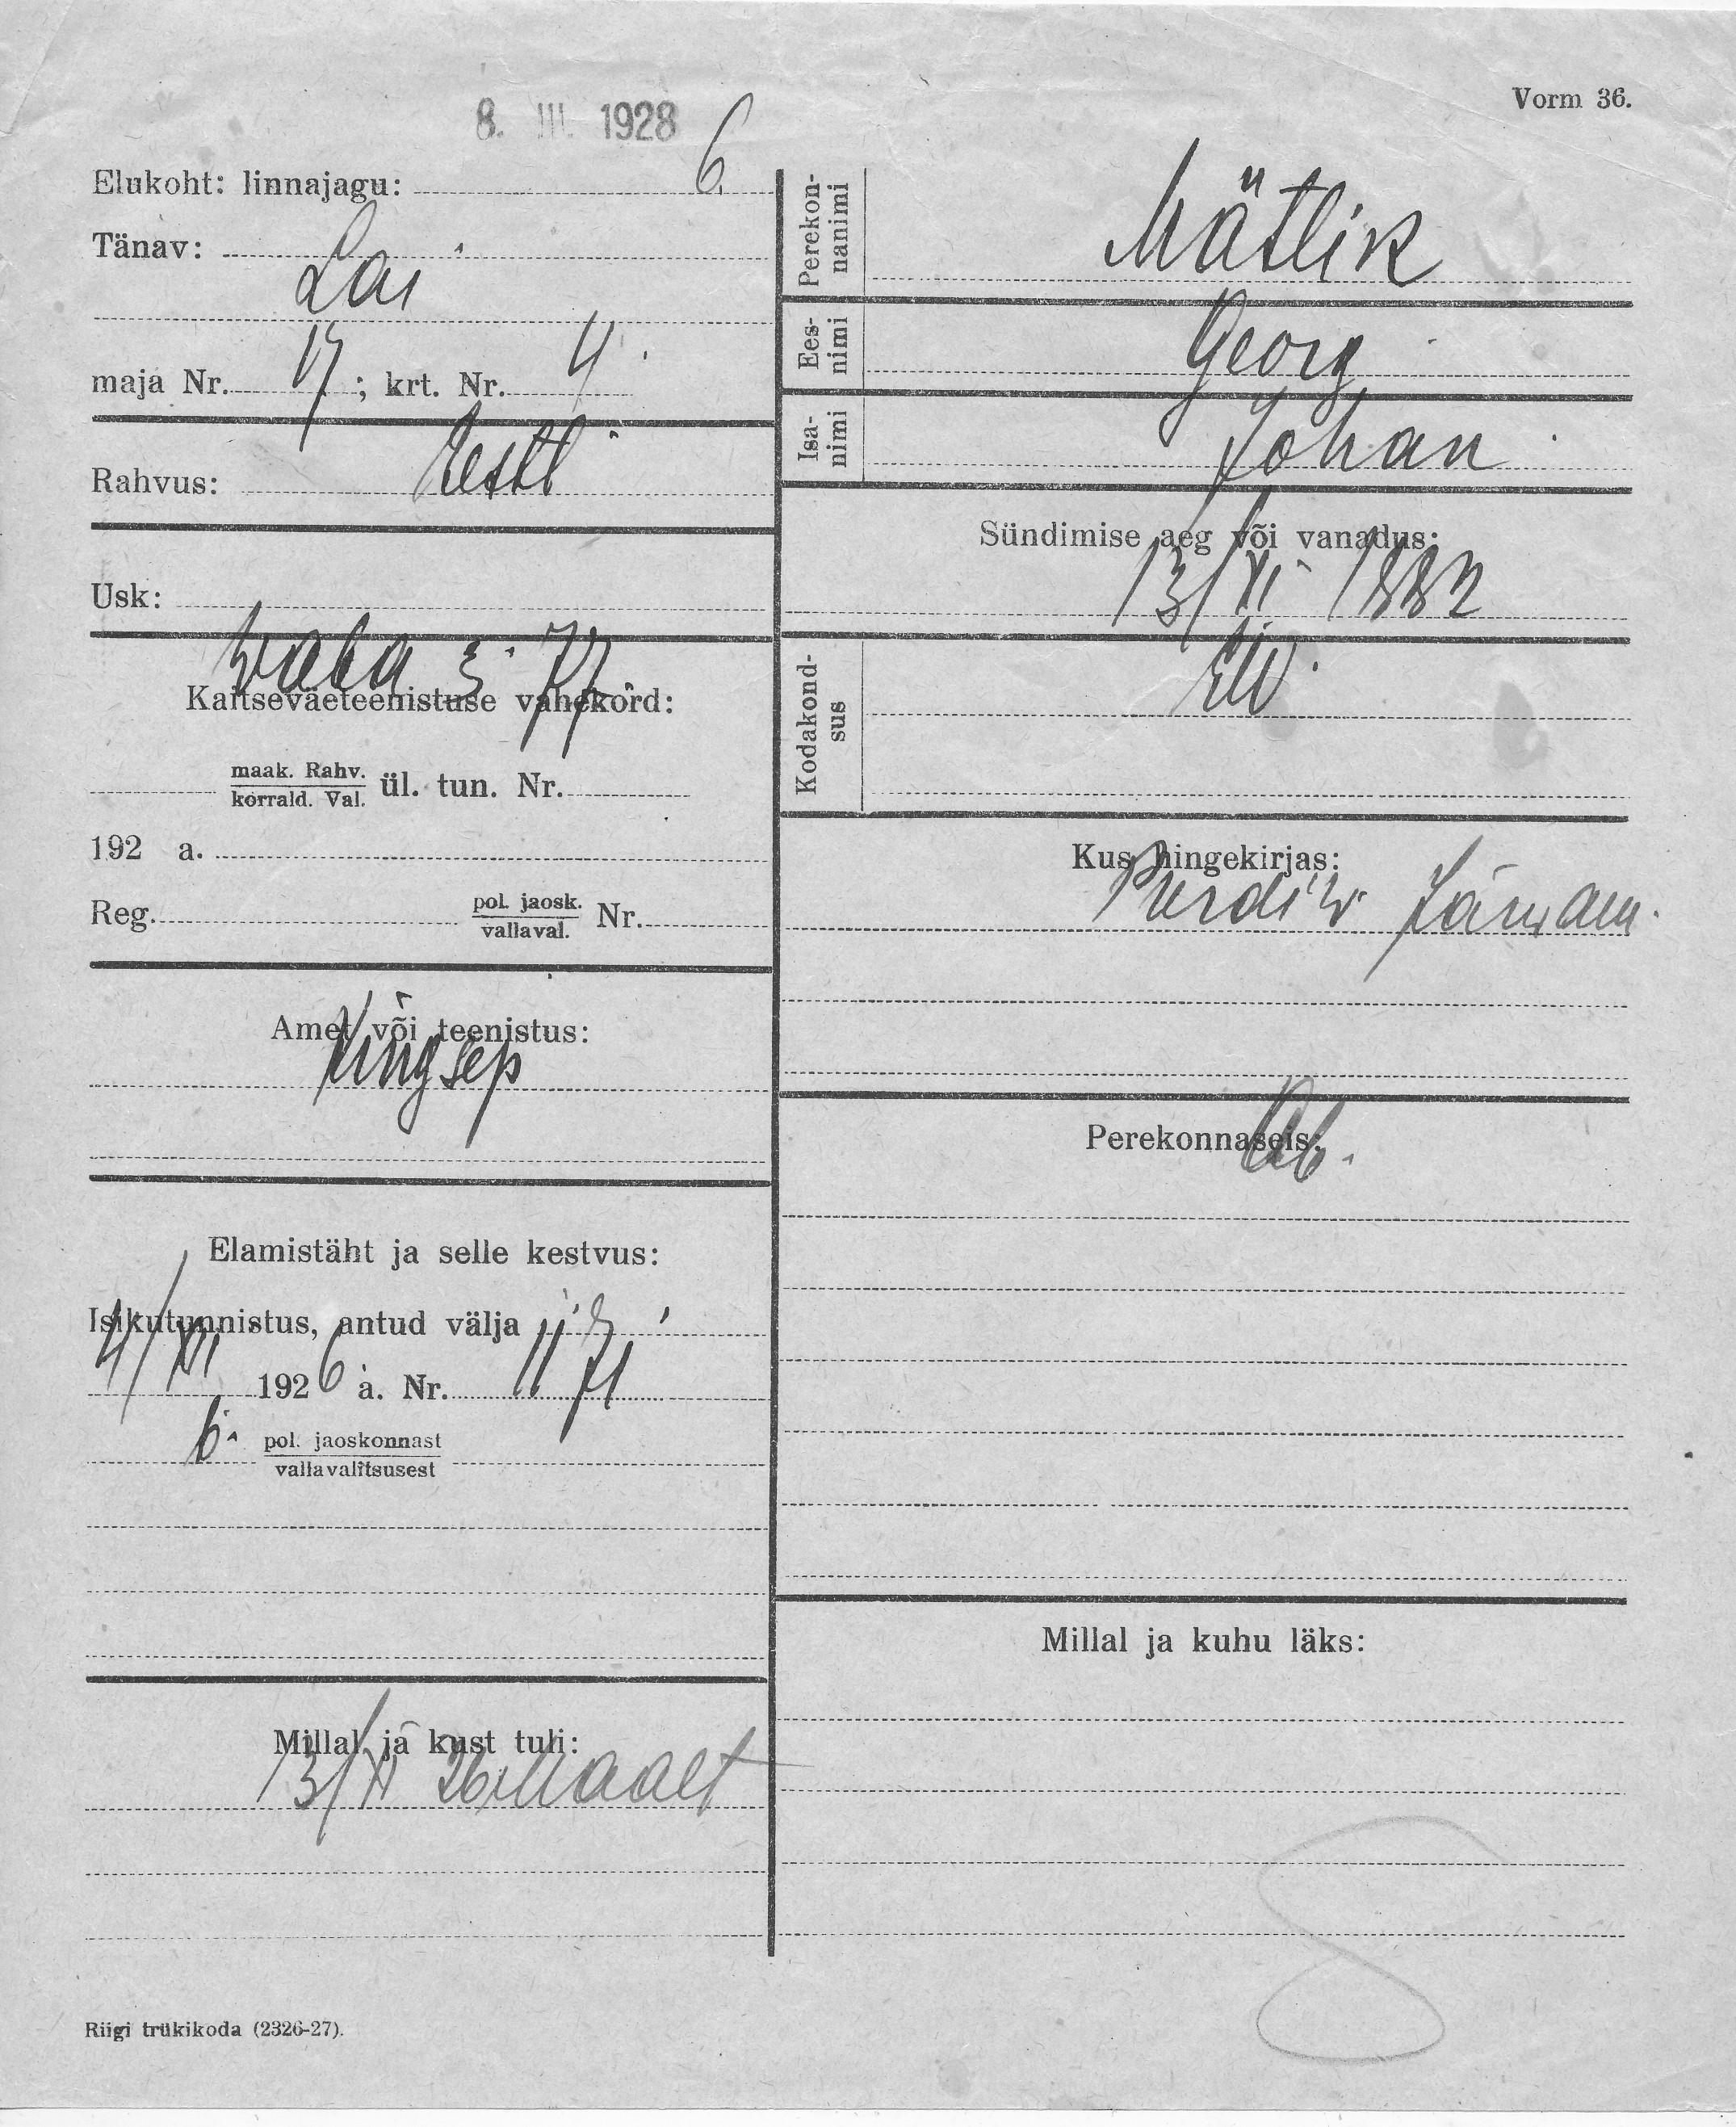 Vorm 36.
8. III. 1928
Elukoht: linnajagu: 6
Tänav:
Lai
maja Nr. 17 ; krt. Nr. 4
Rahvus: Eesti
Usk:
waba
Kaitseväeteenistuse vahekord:
maak. Rahv.
korrald. Val. ül. tun. Nr.
192 a.
Reg. pol. jaosk.
vallaval. Nr.
Amet või teenistus:
Kingsep
Elamistäht ja selle kestvus:
Isikutunnistus, antud välja
4/XI 1926 a. Nr. 1171
6. pol. jaoskonnast
vallavalitsusest
Millal ja kust tuli:
13/XI 26 Maalt
Riigi trükikoda (2326-27).
Perekon-
nanimi
Mätlik
Ees-
nimi
Georg
Isa-
nimi
Johan
Sündimise aeg või vanadus:
13/XI 1882
Kodakond-
sus
EW.
Kus hingekirjas:
Purdi w Järwam.
Perekonnaseis:
Ab.
Millal ja kuhu läks: